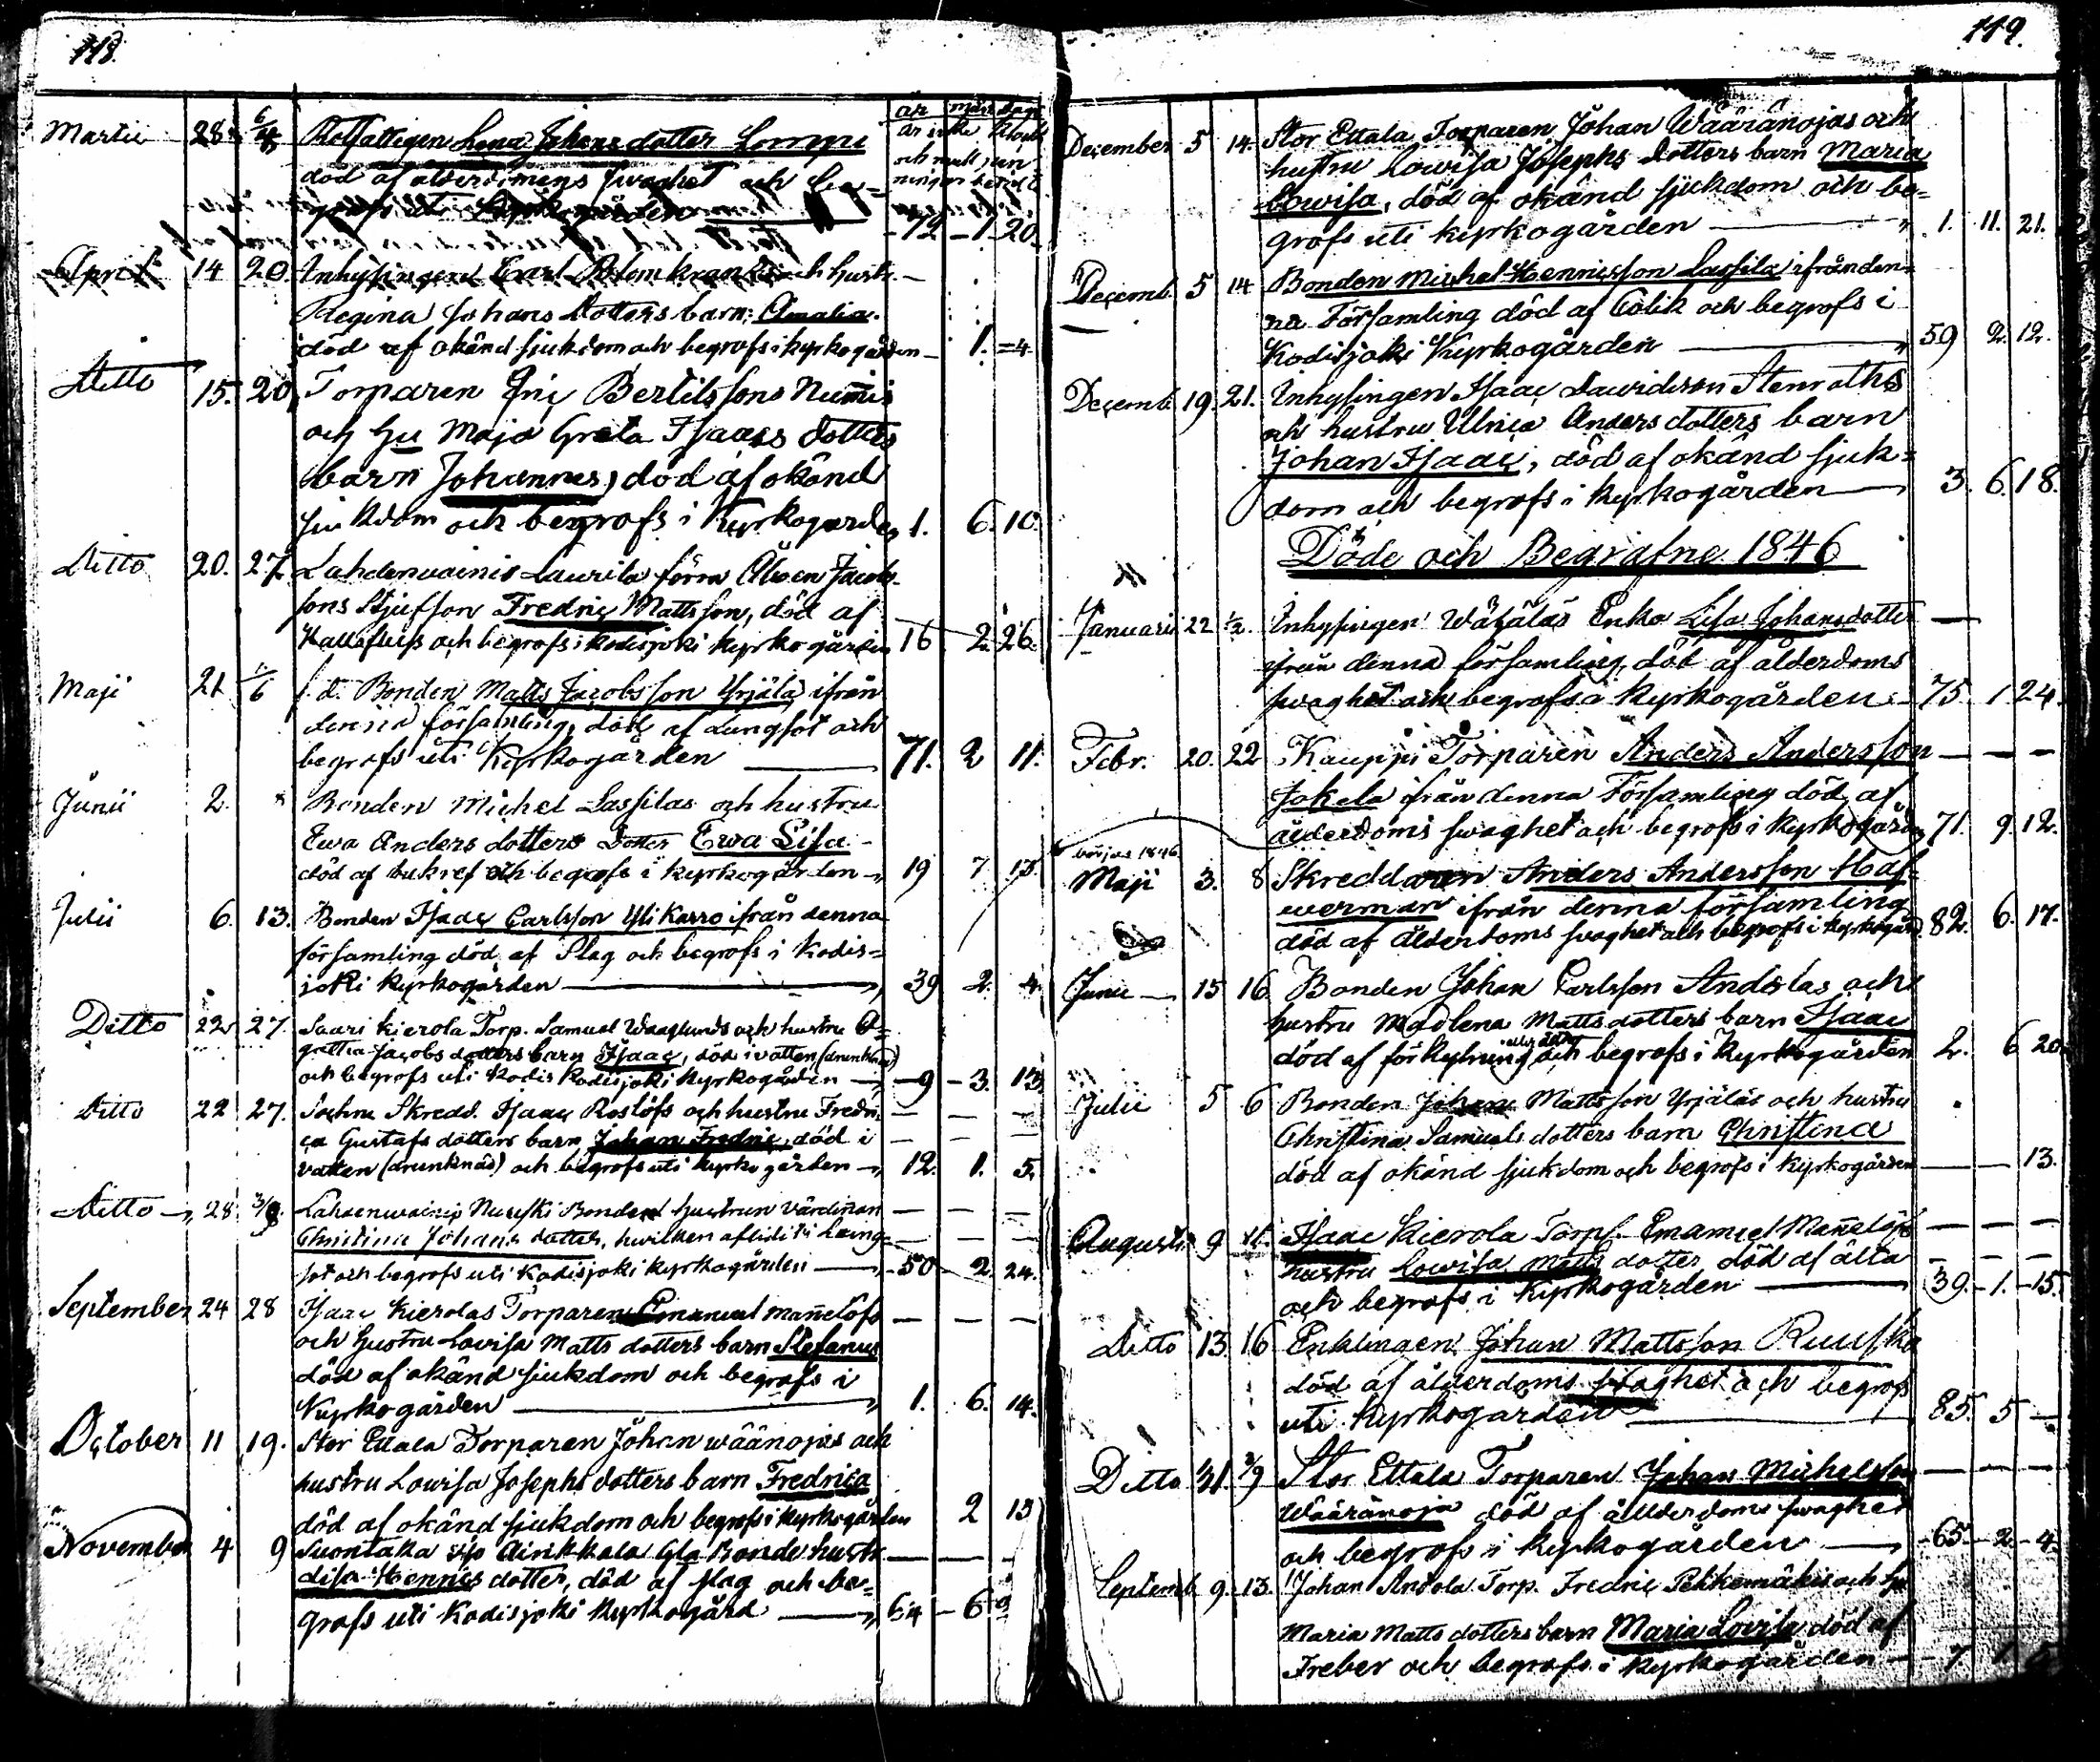 118.
år månd dagar
Martii 28. 6/4 Rotfattigen Lena Johans dotter Lompi
död af ålderdomens swaghet och be-
grofs uti Kyrkogården 72 1 20.
April 14 20. Inhysingen Carl Blomkrantz och hustr.
Regina Johans dotters barn: Amalia.
död af okänd sjukdom och begrofs i kyrkogården 1. 4
Ditto 15. 20 Torparen Eric Bertilssons Nummis
och Hu Maja Greta Isaacs dotters
barn Johannes, död af okänd
sjukdom och begrofs i Kyrkogården 1. 6. 10.
Ditto 20. 27 Lahdenvainio Laurila förra Åboen Jacob-
sons Stjufson Fredric Mattsson, död af
och begrofs i Kodisjoki Kyrkogården 16 2. 26.
Maji 21 1/6 f. d. Bonden Matts Jacobsson Yrjälä ifrån
denna församling, död af Lungsot och
begrofs uti Kyrkogården 71. 2 11.
Junii 2. 8 Bonden Michel Lassilas och hustru
Ewa Anders dotters Dotter Ewa Lisa
död af och begrofs i kyrkogården 19 7 15.
Julii 6. 13. Bonden Isaac Carlsson Ylikarro ifrån denna
församling död af Slag och begrofs i Kodis-
joki kyrkogården 39 2. 4.
Ditto 22 27. Saari Kierola Torp. Samuel Waaglunds och hustru A-
gatha Jacobs dotters barn Isaac, död i vatten (drunknad)
och begrofs uti Kodis Kodisjoki kyrkogården 9 3. 13
Ditto 22 27. Sochne Skredd. Isaac Roslöfs och hustru Fredri-
ca Gustafs dotters barn Johan Fredric, död i
vatten (drunknad) och begrofs uti kyrkogården 12. 1. 5.
Ditto 28 3/8 Lahdenvainio Nuuski Bonden hustrun värdinnan
Christina Johans dotter, hvilken aflidit i Lung-
sot och begrofs uti Kodisjoki kyrkogården 50 2 24.
September 24 28 Isaac Kierolas Torparen Emanuel Mannelöfs
och hustru Lovisa Matts dotters barn Stefanus
död af okänd sjukdom och begrofs i
Kyrkogården 1. 6. 14.
October 11 19. Stor Ettala Torparen Johan Wäänojas och
hustru Lowisa Josephs dotters barn Fredrica
död af okänd sjukdom och begrofs i kyrkogården 2 13
November 4 9 Suontaka Airikkala Gla Bonde hustr.
Lisa Hennics dotter, död af slag och be-
grofs uti Kodisjoki kyrkogård 64 6 9
119.
December 5 14. Stor Ettala Torparen Johan Wääränojas och
hustru Lowisa Josephs dotters barn Maria
Lowisa, död af okänd sjukdom och be-
grofs uti kyrkogården 1. 11. 21.
Decemb. 5 14 Bonden Michel Hennicsson Lassila ifrån den-
na Församling död af Colik och begrofs i
Kodisjoki Kyrkogården 59 2. 12.
Decemb 19. 21. Inhysingen Isaac Davidsson Stenroths
och hustru Ulrica Anders dotters barn
Johan Isaac, död af okänd sjuk-
dom och begrofs i kyrkogården 3. 6. 18.
Döde och Begrafne 1846
Januarii 22 1/2. Inhysingen Wätälas Enka Lisa Johansdotter
ifrån denna församling, död af ålderdoms
swaghet och begrofs i kyrkogården 75. 1 24.
Febr. 20. 22 Kauppi Torparen Anders Andersson
Jokela ifrån denna Församling död af
ålderdoms swaghet och begrofs i kyrkogården 71. 9. 12.
börjas 1846.
Maji 3. 8 Skreddaren Anders Andersson Haf-
werman ifrån denna församling
död af Ålderdoms swaghet och begrofs i kyrkogård. 82. 6. 17.
Junii 15 16 Bonden Johan Carlsson Andolas och
hustru Madlena Matts dotters barn Isaac
död af förkylning eller älta och begrofs i Kyrkogården 2. 6 20.
Julii 5 6 Bonden Johan Mattsson Yrjäläs och hustru
Christina Samuels dotters barn Christina
död af okänd sjukdom och begrofs i kyrkogården 13.
Augusti 9 11. Isaac Kierola Torp. Emanuel Mannelöfs
hustru Lowisa Matts dotter, död af älta
och begrofs i Kyrkogården 39. 1. 15.
Ditto 13. 16 Enklingen Johan Mattsson Ruuska
död af ålderdoms swaghet och begrofs
uti Kyrkogården 85. 5
Ditto 31. 2/9 Stor Ettala Torparen Johan Michelsson
Wääränoja död af ållderdoms swaghet
och begrofs i kyrkogården 65 2 4.
Septemb. 9. 13. Johan Andola Torp. Fredric Pekkamäkis och hu
Maria Matts dotters barn Maria Lovisa död af
Freber och begrofs i kyrkogården 7